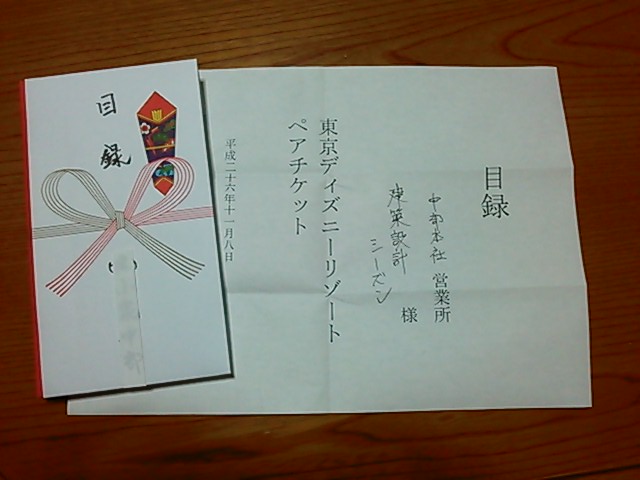 目録
中部本社 営業所
建築設計
シーズン 様
東京ディズニーリゾート
ペアチケット
平成二十六年十一月八日
目録